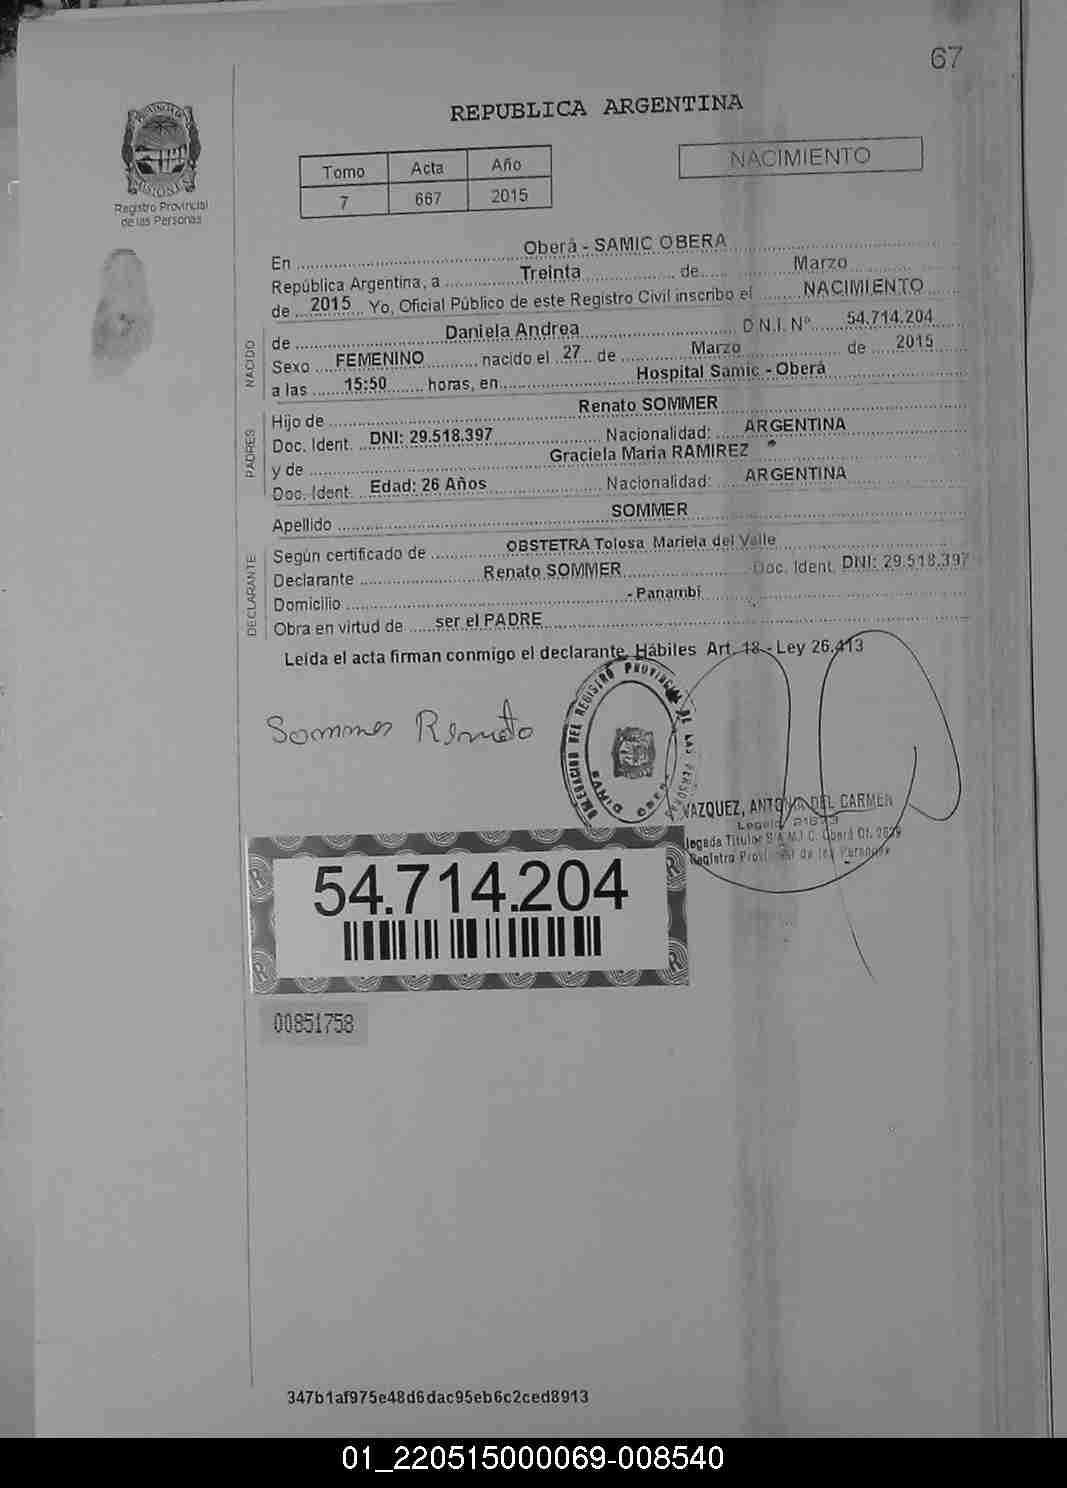 67
REPUBLICA ARGENTINA
PROVINCIA DE
MISIONES
Registro Provincial
de las Personas
Tomo Acta Año
7 667 2015
NACIMIENTO
En Oberá - SAMIC OBERA
República Argentina, a Treinta de Marzo
de 2015 Yo, Oficial Público de este Registro Civil inscribo el NACIMIENTO
NACIDO
de Daniela Andrea D.N.I. Nº 54.714.204
Sexo FEMENINO nacido el 27 de Marzo de 2015
a las 15:50 horas, en Hospital Samic - Oberá
PADRES
Hijo de Renato SOMMER
Doc. Ident. DNI: 29.518.397 Nacionalidad: ARGENTINA
y de Graciela Maria RAMIREZ
Doc. Ident. Edad: 26 Años Nacionalidad: ARGENTINA
Apellido SOMMER
DECLARANTE
Según certificado de OBSTETRA Tolosa Mariela del Valle
Declarante Renato SOMMER Doc. Ident. DNI: 29.518.397
Domicilio - Panambí
Obra en virtud de ser el PADRE
Leída el acta firman conmigo el declarante, Hábiles Art. 18 - Ley 26.413
Sommer Renato
DELEGACION DEL REGISTRO PROVINCIAL DE LAS PERSONAS
VAZQUEZ, ANTONIA DEL CARMEN
Titular S.A.M.I.C. Oberá Of. 2639
Registro Provincial de las Personas
54.714.204
00851758
347b1af975e48d6dac95eb6c2ced8913
01_220515000069-008540